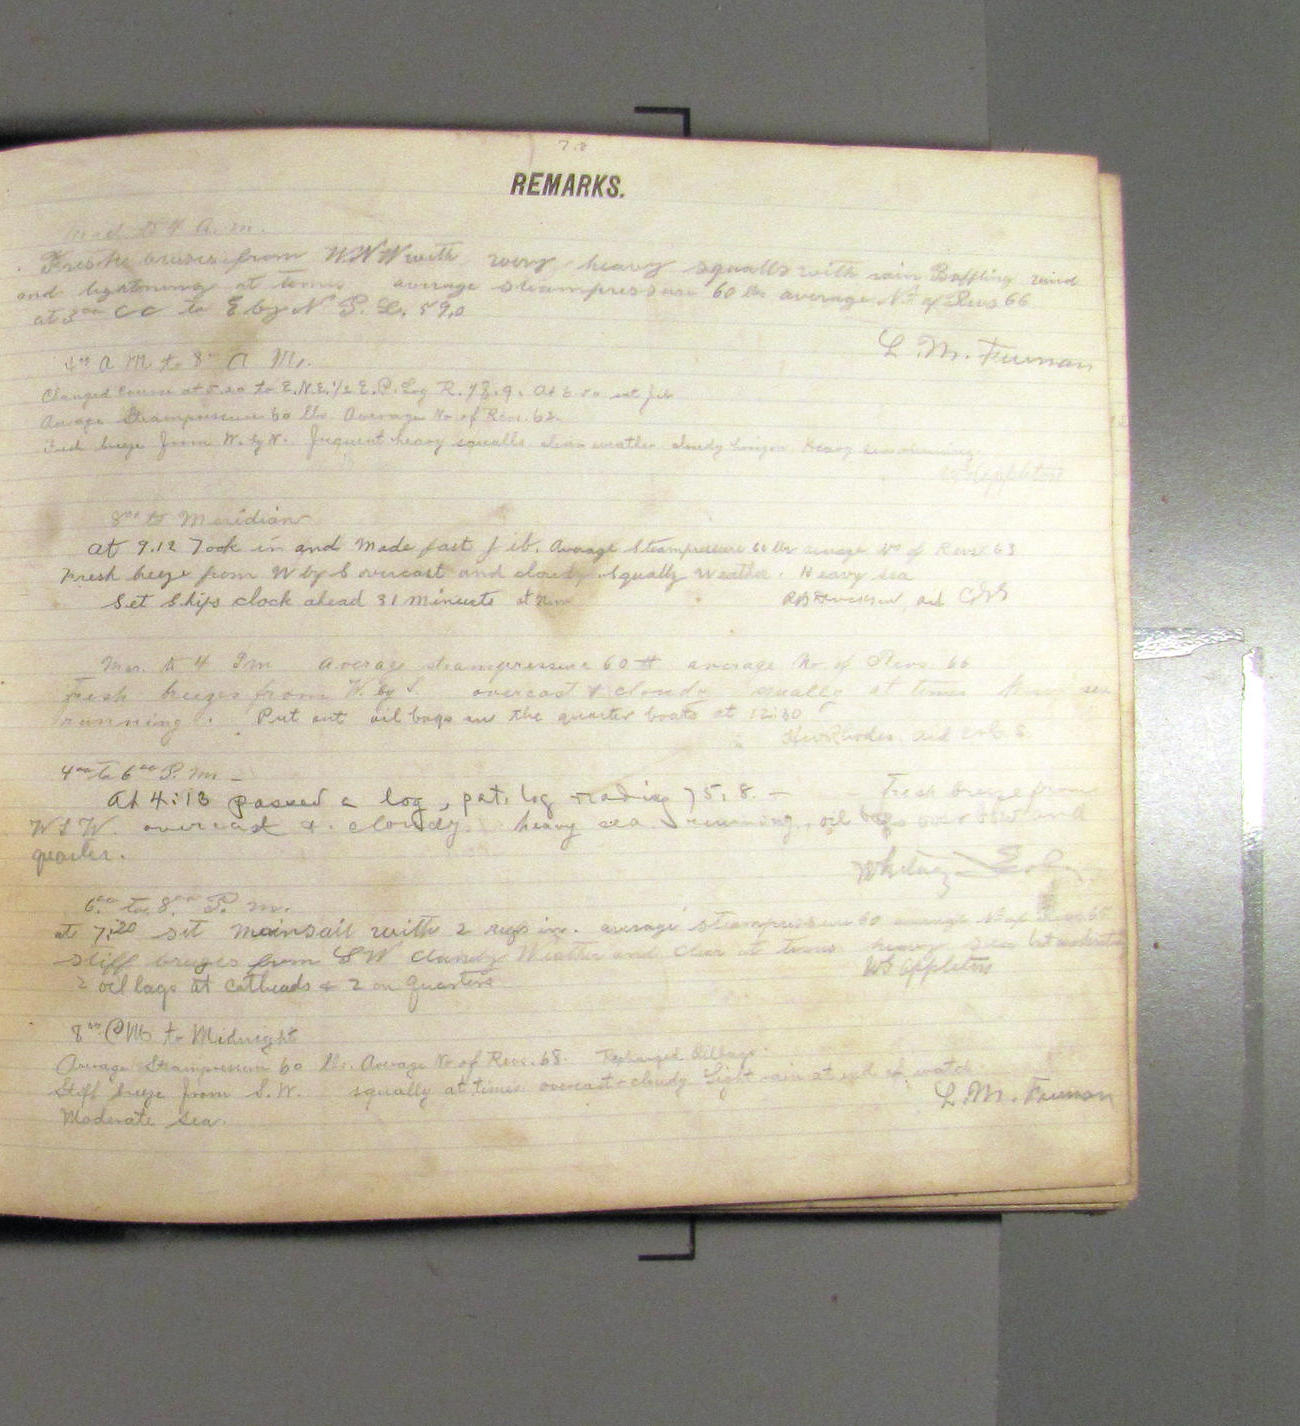 78
REMARKS.
Mid. to 4 A. m.
Freshe breeses from WNW with very heavy squalls with rain Baffling wind
and lightning at times average steampressure 60 lbs average No of Revs 66
at 3°° CC to E by N P. L. 59.0
L. M. Furman
4°° A M to 8°° A M.
Changed Course at 5.20 to E.N.E. 1/2 E. P. Log R. 78.9. At 6.50 set jib
Average Steampressure 60 lbs. Average No of Revs. 62.
Fresh breeze from W. by N. frequent heavy squalls clear weather cloudy horizon Heavy sea running.
WS Appleton
8°° to Meridian
At 9.12 Took in and Made fast jib. Average Steampressure 60 lbs average No of Revs 63
Fresh breeze from W by S overcast and cloudy Squally weather. Heavy sea
Set Ships clock ahead 31 minuets at Noon
and
Mer. to 4 Pm average steampressure 60 # average No of Revs 66
Fresh breezes from W. by S. overcast & cloudy squally at times Heavy sea
running. Put out oil bags in the quarter boats at 12:30
and
4°° to 6°° P. m. —
At 4:13 passed a log, pat. log reading 75.8. — Fresh breeze from
WSW. overcast & cloudy. heavy sea running, oil bags over bow and
quarter.
Whitney
6°° to 8°° P. m.
at 7:20 set mainsail with 2 reefs in. average steampressure 60 average No of Revs 65
stiff breezes from SW cloudy Weather and clear at times heavy sea but moderating
2 oil bags at catheads & 2 on quarters WS Appleton
8°° PM to Midnight
Average Steampressure 60 lbs. Average No of Revs. 68. Recharged Oilbags.
Stiff breeze from S.W. squally at times overcast & cloudy Light rain at end of watch
Moderate sea. L. M. Furman